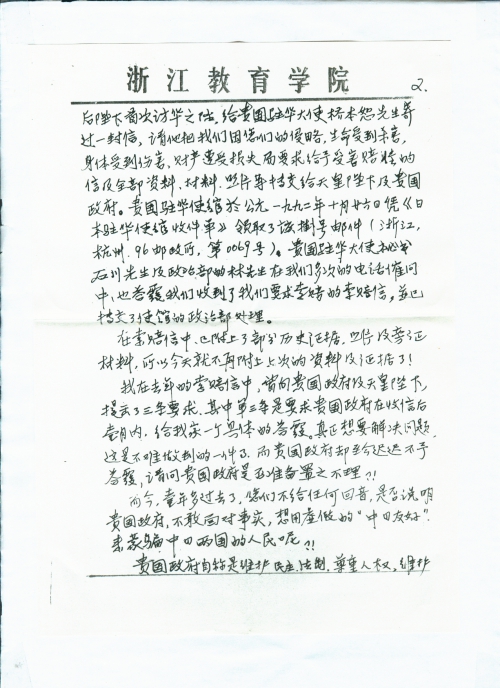 浙江教育学院
2.
后陛下首次访华之际,给贵国驻华大使桥本恕先生寄
过一封信,请他把我们因您们的侵略,生命受到杀害,
身体受到伤害,财产遭受损失而要求给予受害赔偿的
信及全部资料、材料、照片等转交给天皇陛下及贵国
政府。贵国驻华使馆於公元一九九二年十月廿六日凭《日
本驻华使馆收件单》领取了该挂号邮件(浙江,
杭州.96邮政所,第0069号)。贵国驻华大使秘书
石川先生及政治部的林先生在我们多次的电话催问
中,也答覆我们收到了我们要求索赔的索赔信,并已
转交了使馆的政治部处理。
在索赔信中,已附上了部分历史证据、照片及旁证
材料,所以今天就不再附上上次的资料及证据了!
我在去年的索赔信中,曾向贵国政府及天皇陛下,
提出了三条要求,其中第三条是要求贵国政府在收信后
壹月内,给我家一个具体的答覆。真正想要解决问题,
这是不难做到的一件了。而贵国政府却至今迟迟不予
答覆,请问贵国政府是否准备置之不理?!
而今,壹年多过去了,您们不给任何回音,是否说明
贵国政府,不敢面对事实,想用虚假的“中日友好”.
来蒙骗中日两国的人民呢?!
贵国政府自称是维护民主,法制,尊重人权,维护